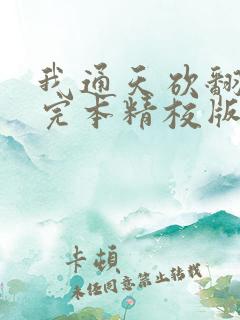 我通天欲翻
完本精校版
卡頓
未经同意禁止转载